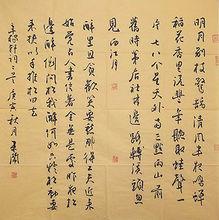 明月别枝驚鵲清风半夜鳴蟬
稻花香里说豐年聽取蛙聲一
片七八个星天外两三点雨山前
舊時茅店社林邊路轉溪頭忽
見西江月
醉里且貪歡笑要愁那得工夫近来
始觉古人書信著全無是處昨夜松
邊醉倒问松我醉何如只疑松動要
来扶以手推松曰去
辛稼轩词二首庚寅秋月